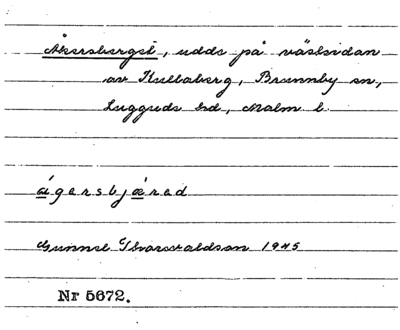 Åkersbergsl, udde på västsidan
av Kullaberg, Brunnby sn,
Luggude hd, Malm. l.
ágersbjǽrad
Gunnel Thorsvaldson 1945
Nr 5672.